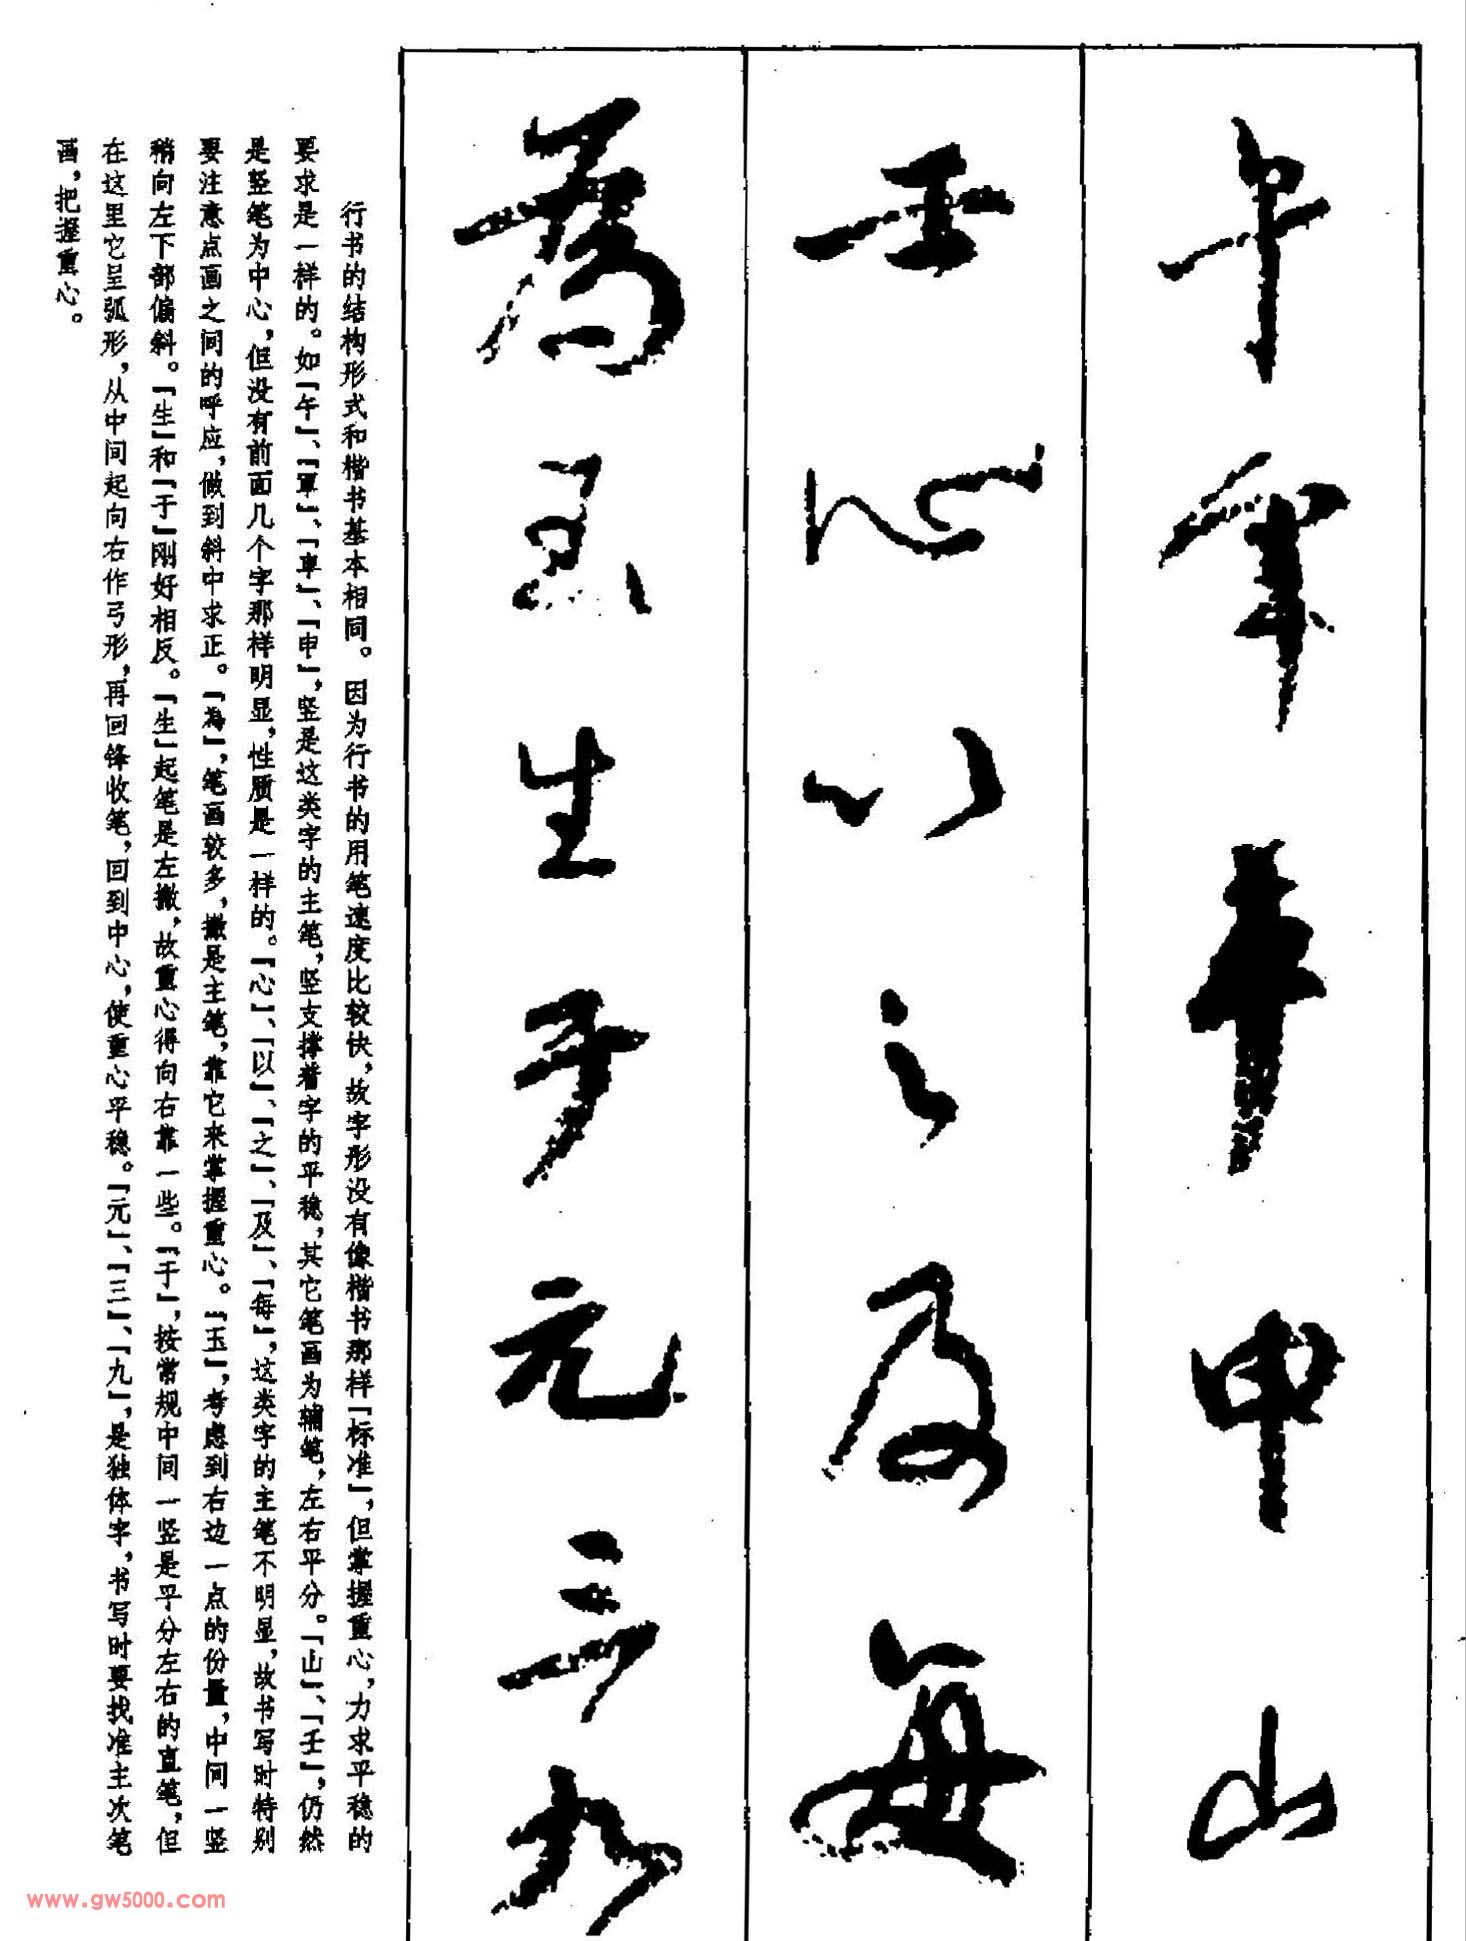 午军车申山
壬心以之及每
為玉生于元三九
行书的结构形式和楷书基本相同。因为行书的用笔速度比较快，故字形没有像楷书那样「标准」，但掌握重心，力求平稳的
要求是一样的。如「午」、「軍」、「車」、「申」，竖是这类字的主笔，竖支撑着字的平稳，其它笔画为辅笔，左右平分。「山」、「壬」，仍然
是竖笔为中心，但没有前面几个字那样明显，性质是一样的。「心」、「以」、「之」、「及」、「每」，这类字的主笔不明显，故书写时特别
要注意点画之间的呼应，做到斜中求正。「為」，笔画较多，撇是主笔，靠它来掌握重心。「玉」，考虑到右边一点的份量，中间一竖
稍向左下部偏斜。「生」和「于」刚好相反。「生」起笔是左撇，故重心得向右靠一些。「于」，按常规中间一竖是平分左右的直笔，但
在这里它呈弧形，从中间起向右作弓形，再回锋收笔，回到中心，使重心平稳。「元」、「三」、「九」，是独体字，书写时要找准主次笔
画，把握重心。
www.gw5000.com